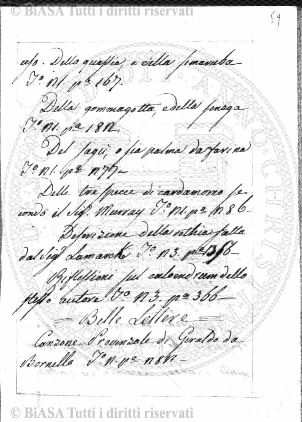 © BiASA Tutti i diritti riservati
59
uso. Della quassia, e della simaruba
T.º n1. pª 167.
Della gommagotta, e della senega
T.º n1. pª 182
Del sagù, o sia palma da farina
T.º n1. pª 177-
Delle tre specie di cardamomo se
condo il Sig. Murray T.º n1. pª 186
Descrizione della ruthia falla
dal Sig. Lamarck T.º n3. pª 366-
Riflessione sul calendrum dello
stesso autore T.º n3. pª 366-
- Belle Lettere -
Canzone Provenzale di Giraldo da
Bornello T.º n. pª 187-
© BiASA Tutti i diritti riservati